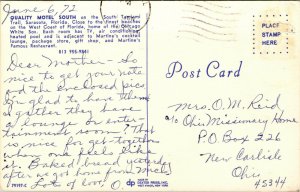 June 6, 72
QUALITY MOTEL SOUTH on the South Tamiami
Trail, Sarasota, Florida. Close to the finest beaches
on the West Coast of Florida, home of the Chicago
White Sox. Each room has TV, air conditioning,
heated pool and is adjacent to Martine's cocktail
lounge, package store, gift shop and Martine's
Famous Restaurant.
813 955-9841
Dear Mother - So
nice to get your note
and the enclosed pics.
So glad to have them
I gather they have
a lounge. So enter-
tainment room? That
is nice for get-togethers
when one feels like
it. Baked bread yesterday
after we got home from
Lots of love, O.
PLACE
STAMP
HERE
Post Card
Mrs. O. M. Reid
c/o Ohio Missionary Home
P.O. Box 226
New Carlisle
Ohio
45344
dp